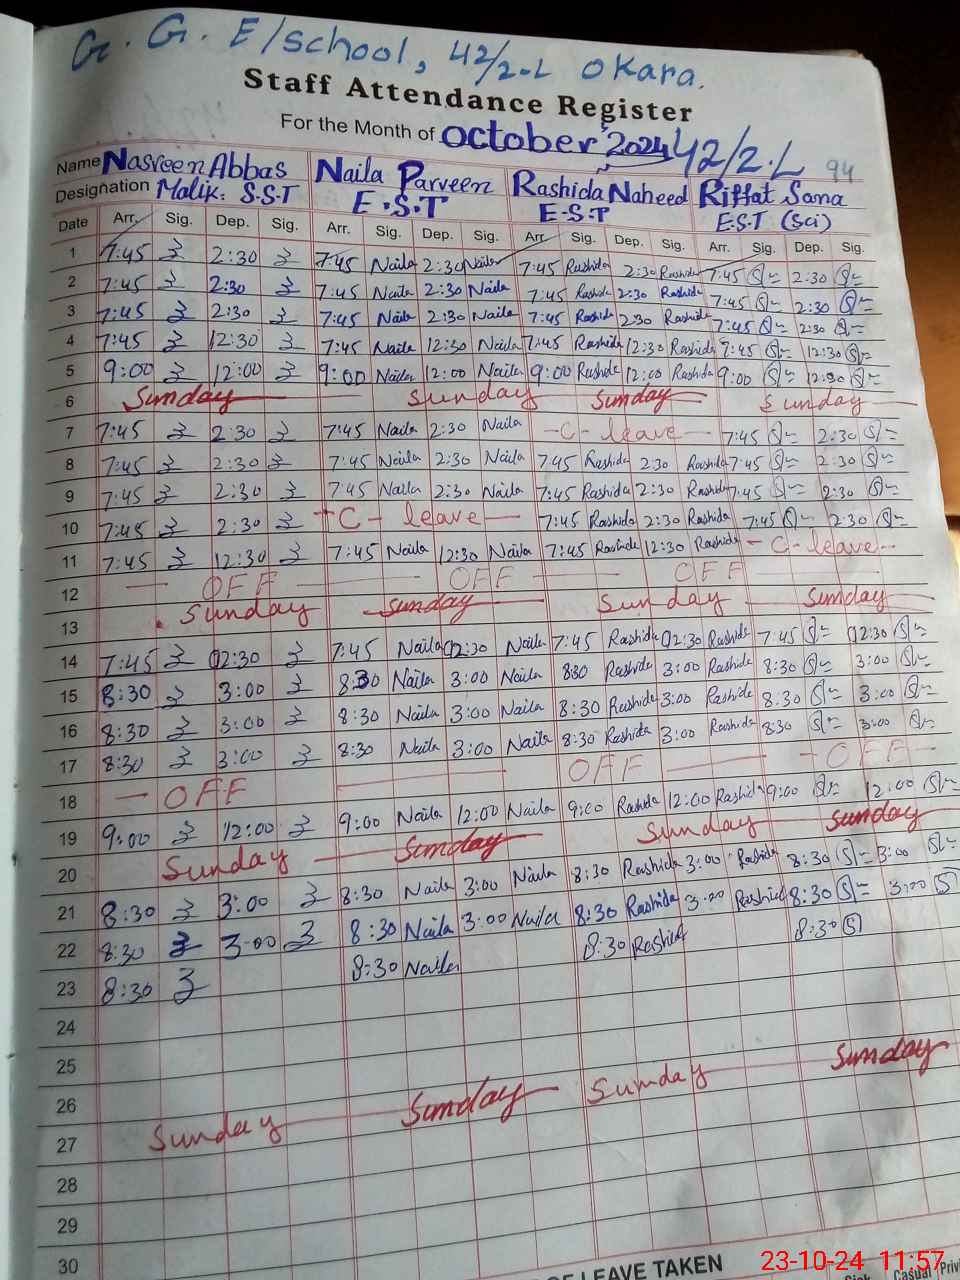 G. G. E/school, 42/2-L Okara.
Staff Attendance Register
For the Month of october 2024 42/2.L 94
Name Nasreen Abbas Naila Parveen Rashida Naheed Riffat Sana
Designation Malik. S.S.T E.S.T E.S.T E.S.T (Sci)
Date Arr. Sig. Dep. Sig. Arr. Sig. Dep. Sig. Arr. Sig. Dep. Sig. Arr. Sig. Dep. Sig.
1 7:45 2:30 7:45 Naila 2:30 Naila 7:45 Rashida 2:30 Rashida 7:45 2:30
2 7:45 2:30 7:45 Naila 2:30 Naila 7:45 Rashida 2:30 Rashida 7:45 2:30
3 7:45 2:30 7:45 Naila 2:30 Naila 7:45 Rashida 2:30 Rashida 7:45 2:30
4 7:45 12:30 7:45 Naila 12:30 Naila 7:45 Rashida 12:30 Rashida 7:45 12:30
5 9:00 12:00 9:00 Naila 12:00 Naila 9:00 Rashida 12:00 Rashida 9:00
6 Sunday Sunday Sunday Sunday
7 7:45 2:30 7:45 Naila 2:30 Naila -C- leave- 7:45 2:30
8 7:45 2:30 7:45 Naila 2:30 Naila 7:45 Rashida 2:30 Rashida 7:45 2:30
9 7:45 2:30 7:45 Naila 2:30 Naila 7:45 Rashida 2:30 Rashida 7:45 2:30
10 7:45 2:30 -C- leave- 7:45 Rashida 2:30 Rashida 7:45 2:30
11 7:45 12:30 7:45 Naila 12:30 Naila 7:45 Rashida 12:30 Rashida -C-leave-
12 OFF OFF OFF
13 Sunday Sunday Sunday Sunday
14 7:45 02:30 7:45 Naila 02:30 Naila 7:45 Rashida 02:30 Rashida 7:45 02:30
15 8:30 3:00 8:30 Naila 3:00 Naila 8:30 Rashida 3:00 Rashida 8:30 3:00
16 8:30 3:00 8:30 Naila 3:00 Naila 8:30 Rashida 3:00 Rashida 8:30 3:00
17 8:30 3:00 8:30 Naila 3:00 Naila 8:30 Rashida 3:00 Rashida 8:30 3:00
18 - OFF OFF - OFF -
19 9:00 12:00 9:00 Naila 12:00 Naila 9:00 Rashida 12:00 Rashida 9:00 12:00
20 Sunday Sunday Sunday Sunday
21 8:30 3:00 8:30 Naila 3:00 Naila 8:30 Rashida 3:00 Rashida 8:30 3:00
22 8:30 3:00 8:30 Naila 3:00 Naila 8:30 Rashida 3:00 Rashida 8:30 3:00
23 8:30 8:30 Naila 8:30 Rashida 8:30
24
25
26
27 Sunday Sunday Sunday Sunday
28
29
30
LEAVE TAKEN
Casual
23-10-24 11:57